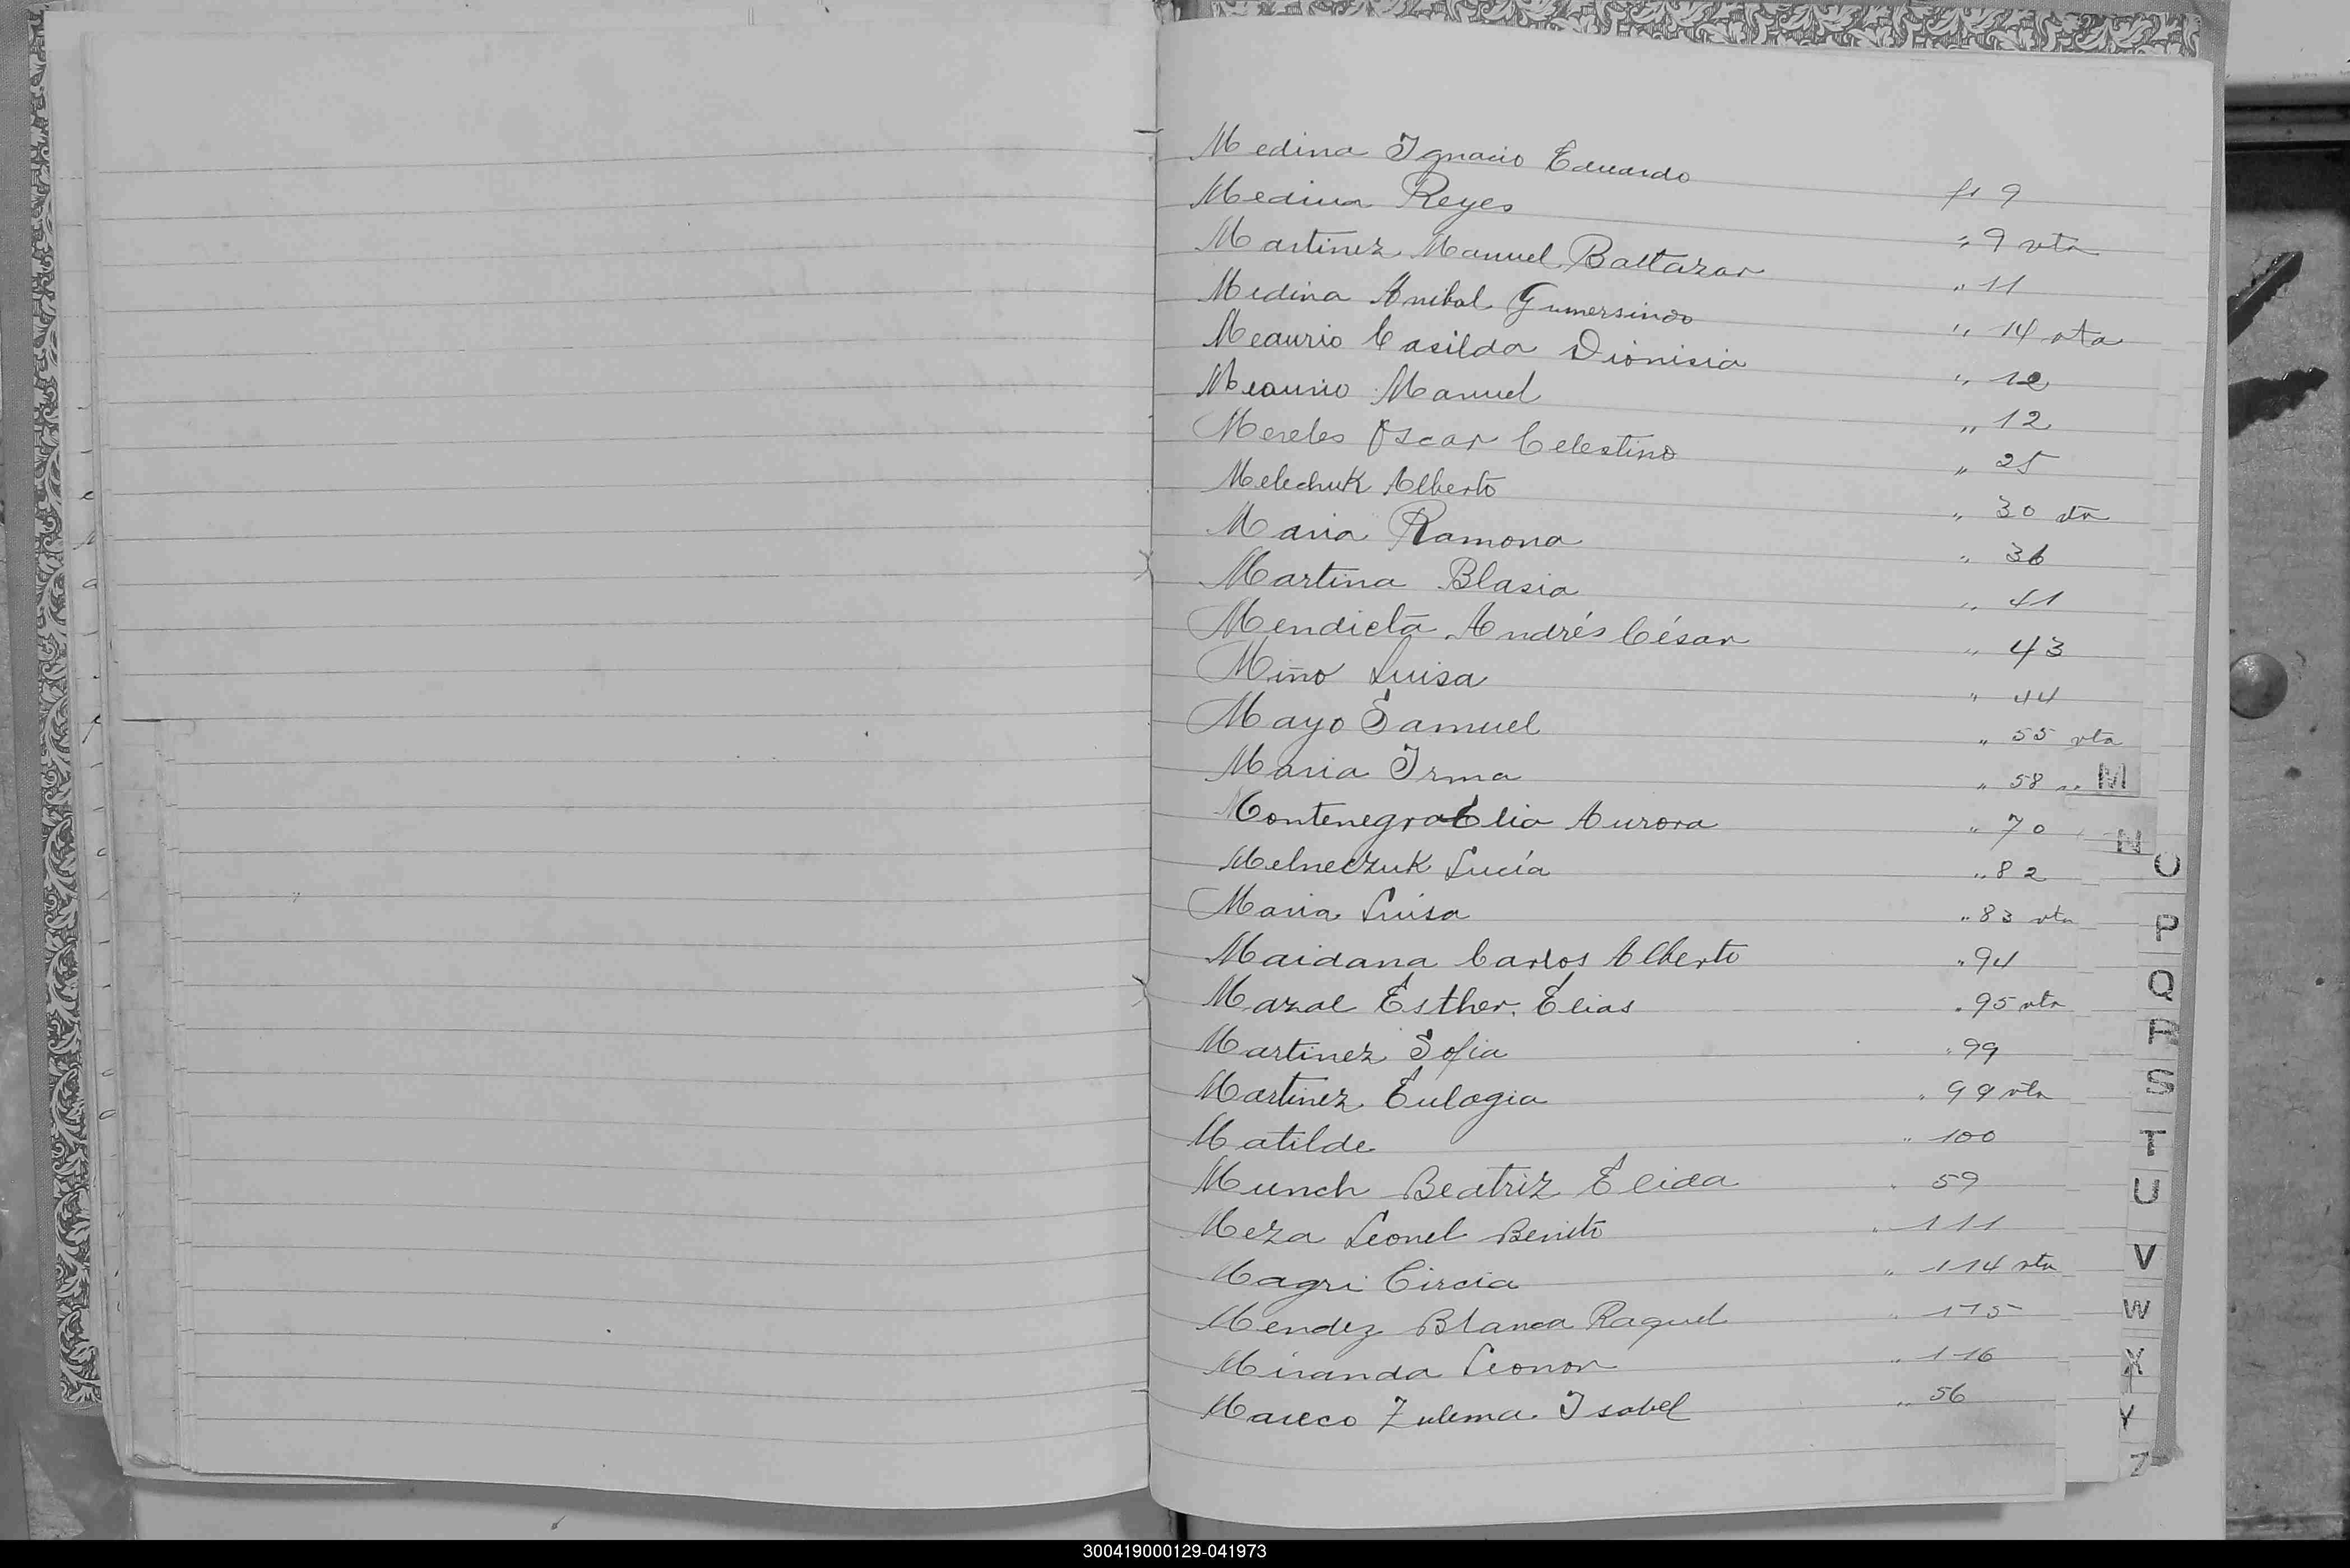 Medina Ignacio Eduardo f. 9
Medina Reyes " 9 vta
Martinez Manuel Baltazar " 11
Medina Anibal Gumersindo " 14 vta
Meaurio Casilda Dionisia " 12
Meaurio Manuel " 12
Mereles Oscar Celestino " 25
Melechuk Alberto " 30 vta
Maria Ramona " 36
Martina Blasia " 41
Mendieta Andrés César " 43
Miño Luisa " 44
Mayo Samuel " 55 vta
Maria Irma " 58 "
Montenegro Elia Aurora " 70
Melneczuk Lucía " 82
Maria Luisa " 83 vta
Maidana Carlos Alberto " 94
Mazal Esther Elias " 95 vta
Martinez Sofia " 99
Martinez Eulogia " 99 vta
Matilde " 100
Munch Beatriz Elida " 59
Meza Leonel Benito " 111
Magri Circia " 114 vta
Mendez Blanca Raquel " 115
Miranda Leonor " 116
Mareco Zulema Isabel " 56
M
N
O
P
Q
R
S
T
U
V
W
X
Y
Z
300419000129-041973